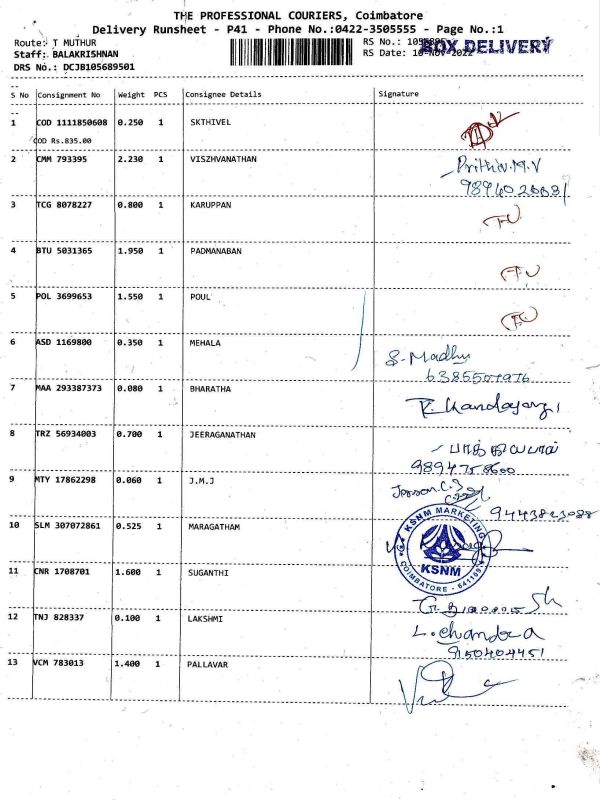 THE PROFESSIONAL COURIERS, Coimbatore
Delivery Runsheet - P41 - Phone No.:0422-3505555 - Page No.:1
Route: T MUTHUR
RS No.:
BOX DELIVERY
Staff: BALAKRISHNAN
RS Date: 10-NOV-2022
DRS No.: DCJB105689501
S No Consignment No Weight PCS Consignee Details Signature
1 COD 1111850608 0.250 1 SKTHIVEL
COD Rs.835.00
2 CMM 793395 2.230 1 VISZHVANATHAN Prithiv.M.V
3 TCG 8078227 0.800 1 KARUPPAN
4 BTU 5031365 1.950 1 PADMANABAN
5 POL 3699653 1.550 1 POUL
6 ASD 1169800 0.350 1 MEHALA S. Madhu
6385507976
7 MAA 293387373 0.080 1 BHARATHA
8 TRZ 56934003 0.700 1 JEERAGANATHAN
9894758600
9 MTY 17862298 0.060 1 J.M.J
9443823088
10 SLM 307072861 0.525 1 MARAGATHAM
KSNM MARKETING
KSNM
COIMBATORE - 641199
11 CNR 1708701 1.600 1 SUGANTHI
12 TNJ 828337 0.100 1 LAKSHMI L. chandra
9150404451
13 VCM 783013 1.400 1 PALLAVAR